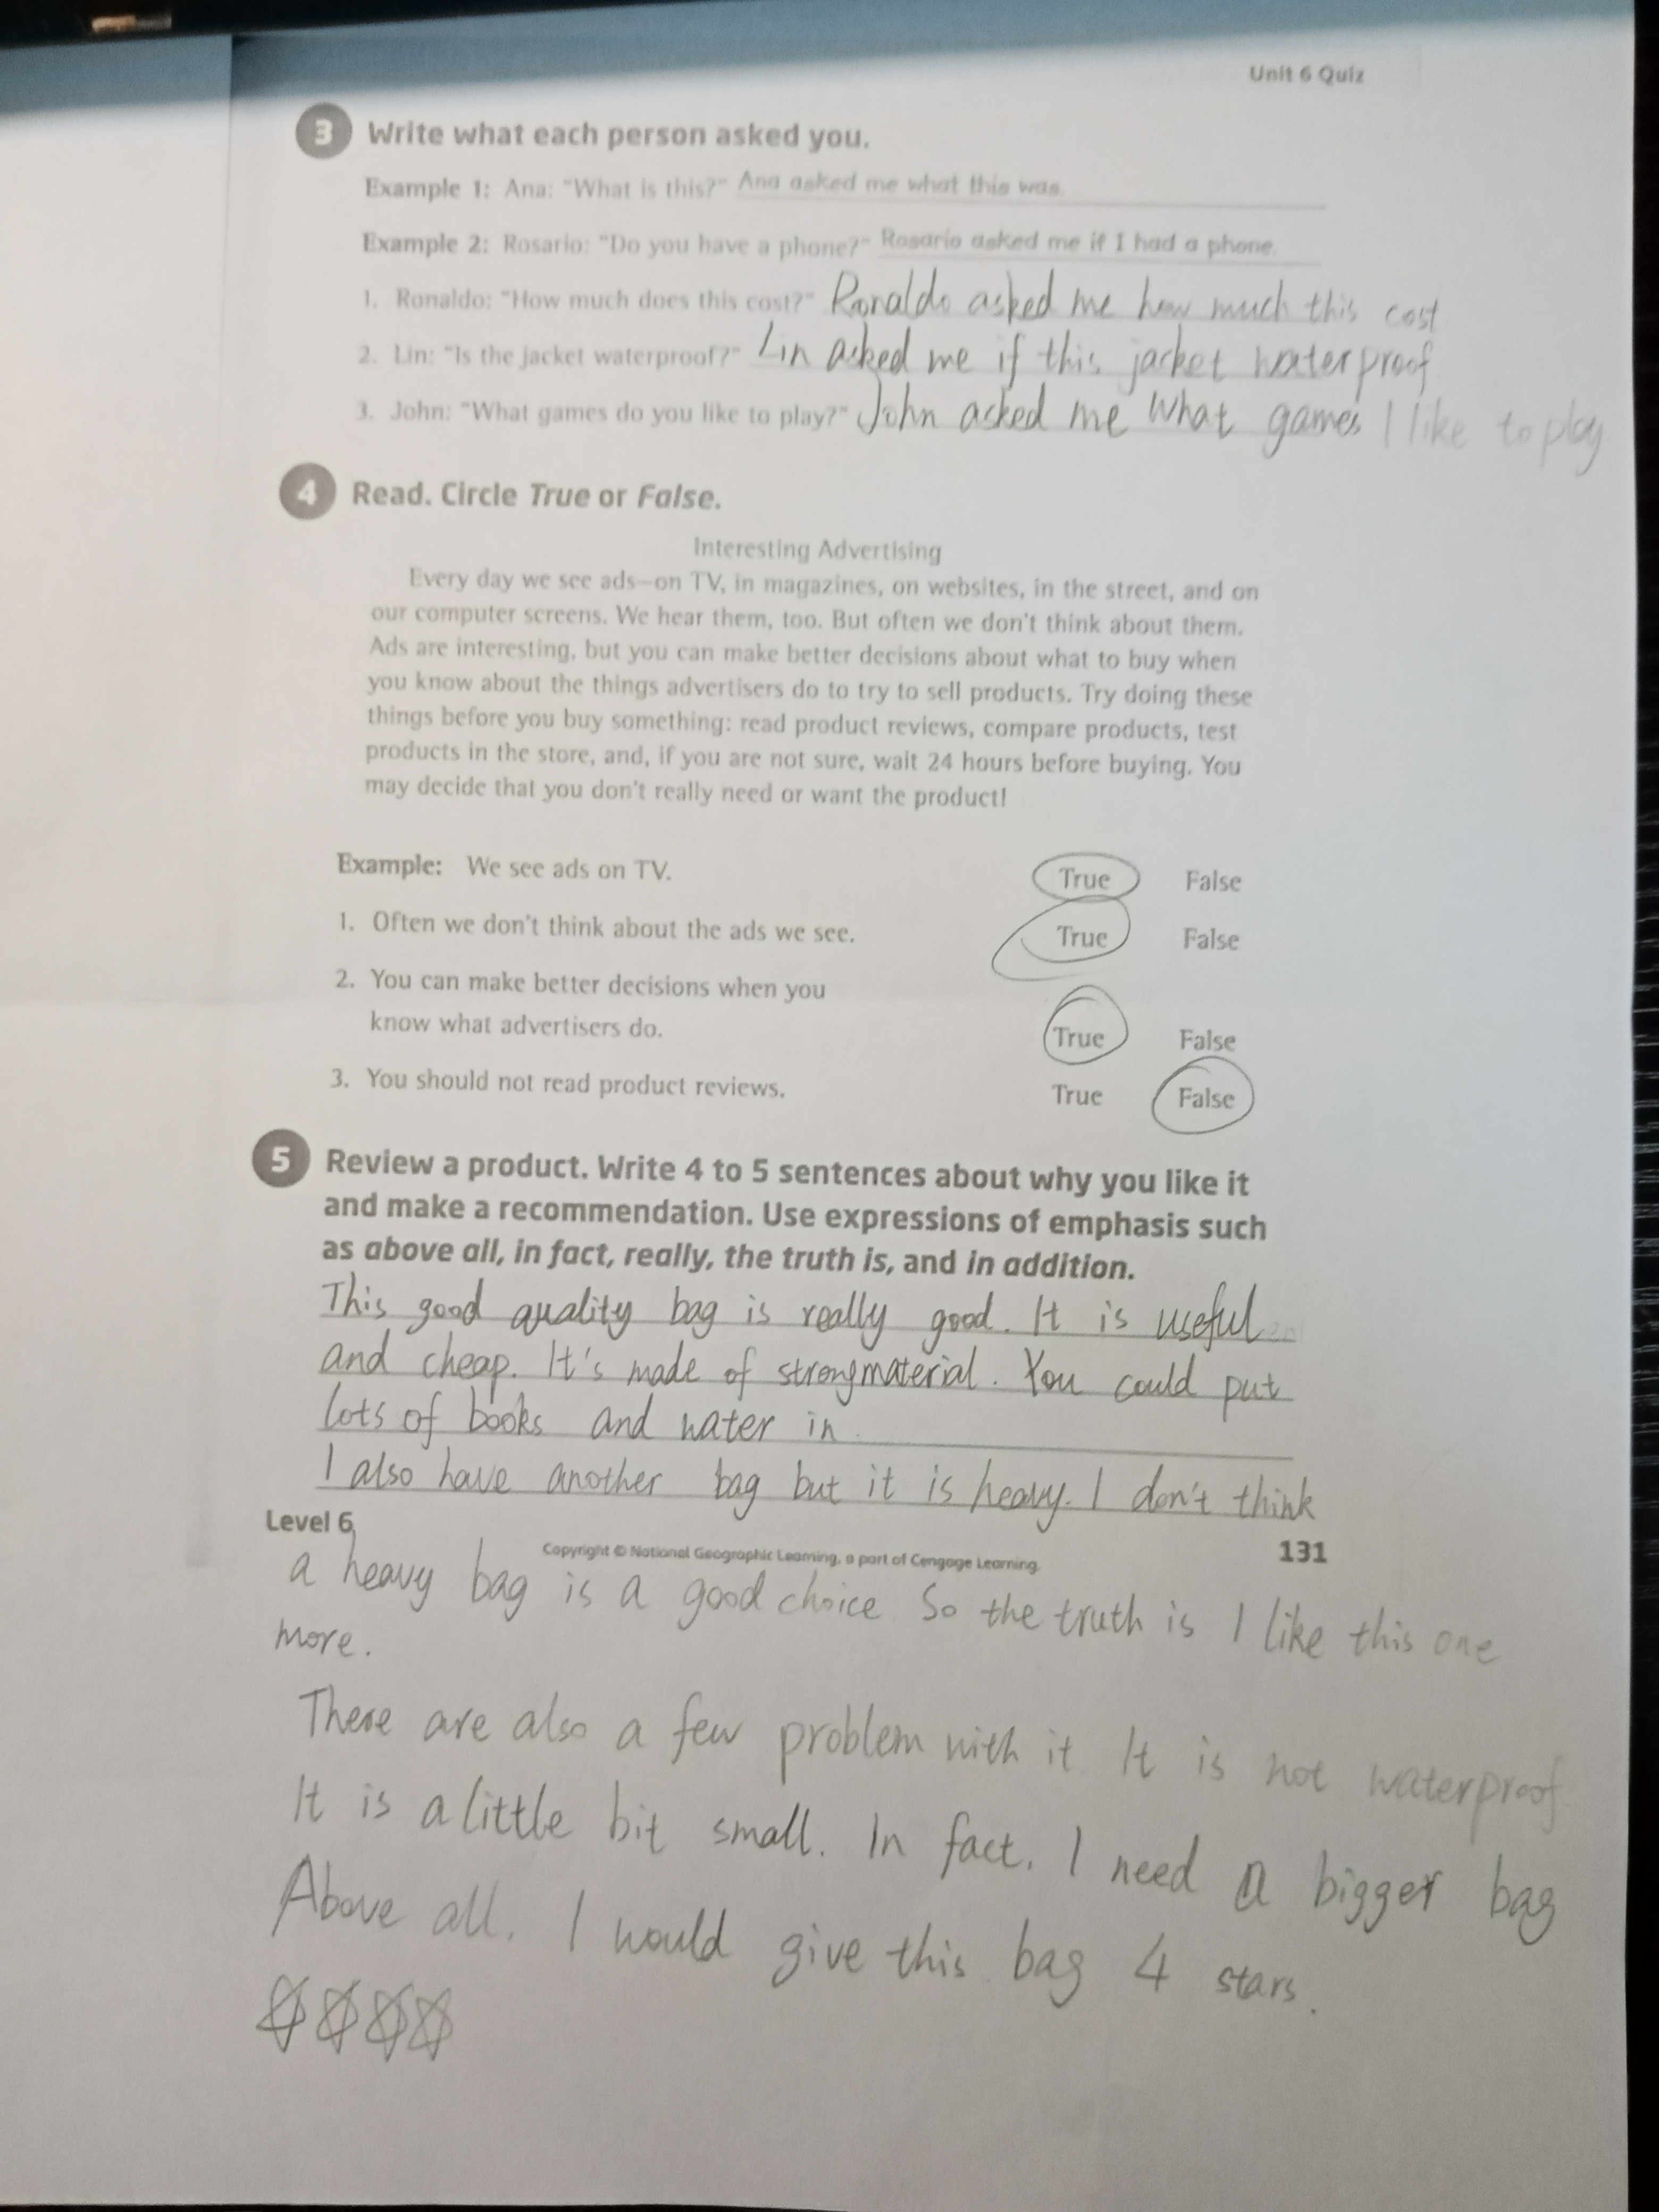 Unit 6 Quiz
3 Write what each person asked you.
Example 1: Ana: "What is this?" Ana asked me what this was.
Example 2: Rosario: "Do you have a phone?" Rosario asked me if I had a phone.
1. Ronaldo: "How much does this cost?" Ronaldo asked me how much this cost
2. Lin: "Is the jacket waterproof?" Lin asked me if this jacket waterproof
3. John: "What games do you like to play?" John asked me What games I like to play
4 Read. Circle True or False.
Interesting Advertising
Every day we see ads—on TV, in magazines, on websites, in the street, and on
our computer screens. We hear them, too. But often we don't think about them.
Ads are interesting, but you can make better decisions about what to buy when
you know about the things advertisers do to try to sell products. Try doing these
things before you buy something: read product reviews, compare products, test
products in the store, and, if you are not sure, wait 24 hours before buying. You
may decide that you don't really need or want the product!
Example: We see ads on TV. True False
1. Often we don't think about the ads we see. True False
2. You can make better decisions when you
know what advertisers do. True False
3. You should not read product reviews. True False
5 Review a product. Write 4 to 5 sentences about why you like it
and make a recommendation. Use expressions of emphasis such
as above all, in fact, really, the truth is, and in addition.
This good quality bag is really good. It is useful
and cheap. It's made of strong material. You could put
lots of books and water in.
I also have another bag but it is heavy. I don't think
Level 6
Copyright © National Geographic Learning, a part of Cengage Learning. 131
a heavy bag is a good choice So the truth is I like this one
more.
There are also a few problem with it. It is not waterproof.
It is a little bit small. In fact, I need a bigger bag
Above all, I would give this bag 4 stars.